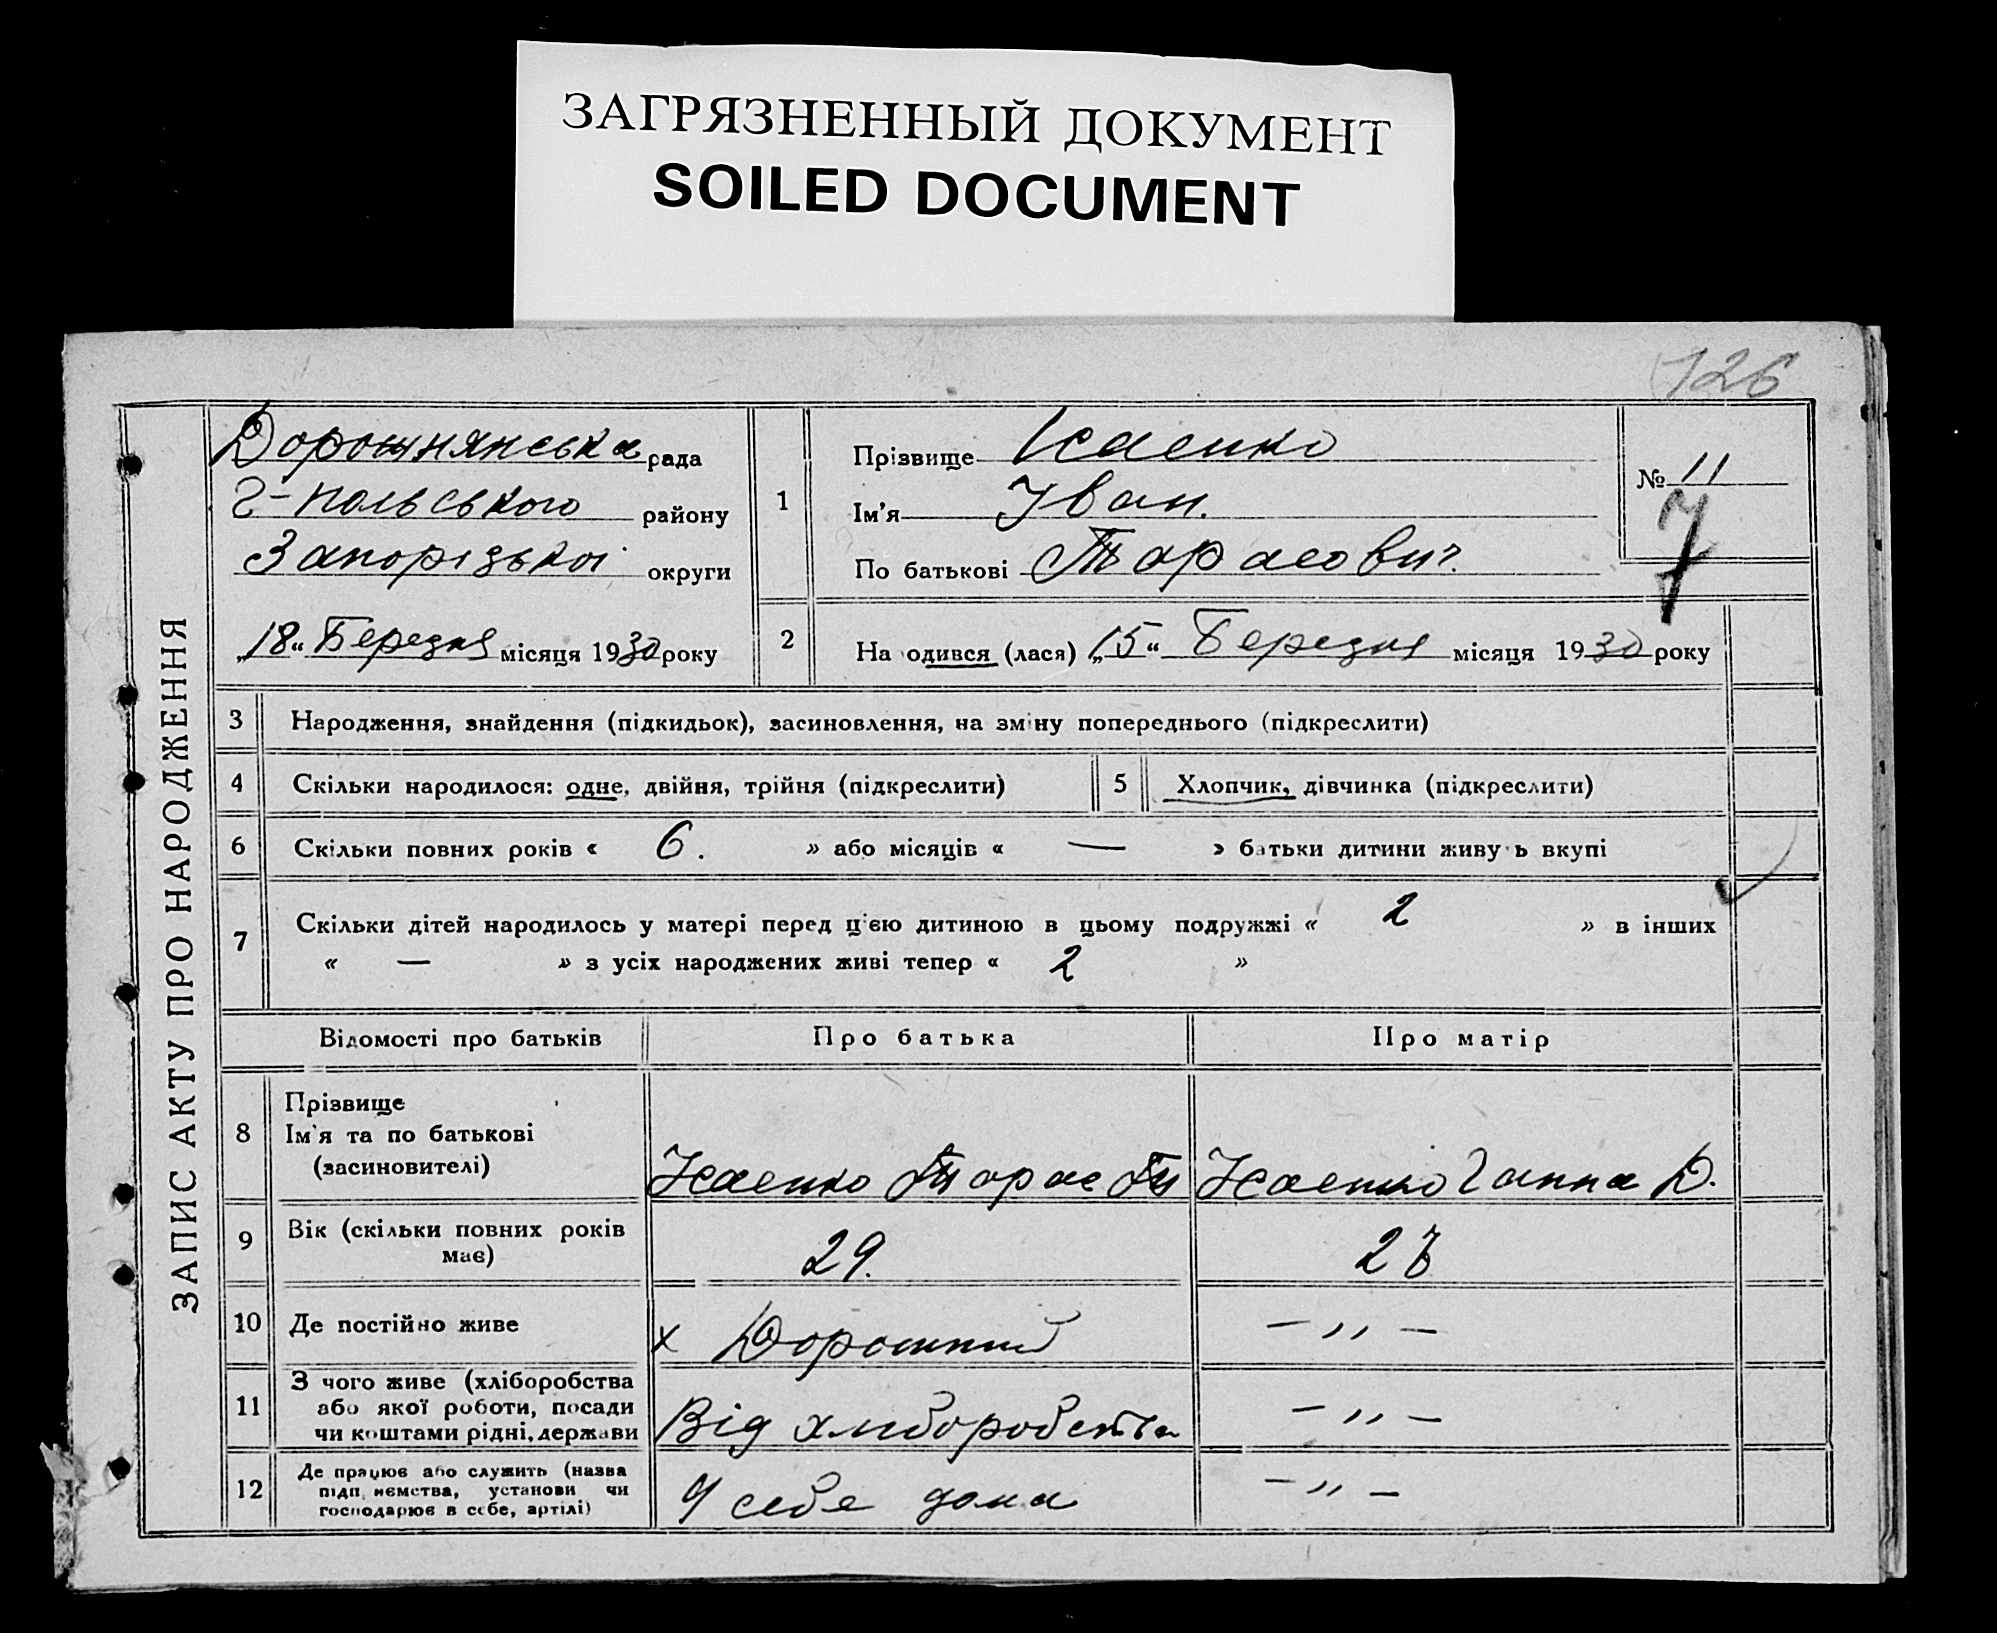 ЗАГРЯЗНЕННЫЙ ДОКУМЕНТ
SOILED DOCUMENT
126
ЗАПИС АКТУ ПРО НАРОДЖЕННЯ
Дорожнянська рада
Г-польського району
Запорізької округи
„18“ Березня місяця 1930 року
1
Прізвище Ісаенко
Ім'я Іван.
По батькові Тарасович.
№ 11
7
2
На одився (лася) „15“ Березня місяця 1930 року
3 Народження, знайдення (підкидьок), засиновлення, на зміну попереднього (підкреслити)
4 Скільки народилося: одне, двійня, трійня (підкреслити)
5 Хлопчик, дівчинка (підкреслити)
6 Скільки повних років « 6. » або місяців « — » батьки дитини живуть вкупі
7 Скільки дітей народилось у матері перед цією дитиною в цьому подружжі « 2 » в інших
« — » з усіх народжених живі тепер « 2 »
Відомості про батьків Про батька Про матір
8 Прізвище
Ім'я та по батькові
(засиновителі)
Ісаенко Тарас Ти Ісаенко Ганна Д.
9 Вік (скільки повних років
має)
29.
10 Де постійно живе
х — „ —
11 З чого живе (хліборобства
або якої роботи, посади
чи коштами рідні, держави
Від хліборобства — „ —
12 Де працює або служить (назва
підприємства, установи чи
господарює в себе, артілі)
У себе дома — „ —